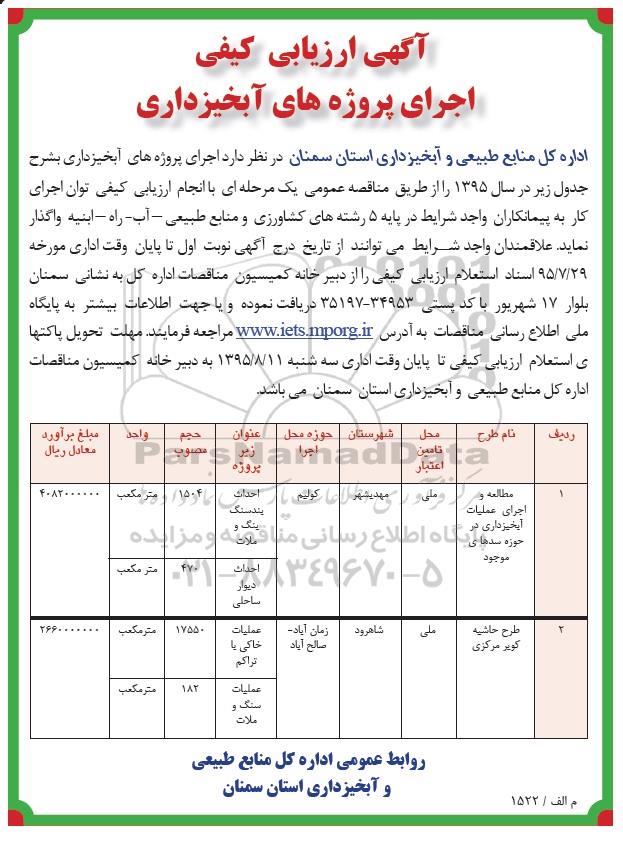 آگهی ارزیابی کیفی
اجرای پروژه های آبخیزداری
اداره کل منابع طبیعی و آبخیزداری استان سمنان در نظر دارد اجرای پروژه های آبخیزداری بشرح
جدول زیر در سال ۱۳۹۵ را از طریق مناقصه عمومی یک مرحله ای با انجام ارزیابی کیفی توان اجرای
کار به پیمانکاران واجد شرایط در پایه ۵ رشته های کشاورزی و منابع طبیعی – آب- راه – ابنیه واگذار
نماید. علاقمندان واجد شــرایط می توانند از تاریخ درج آگهی نوبت اول تا پایان وقت اداری مورخه
۹۵/۷/۲۹ اسناد استعلام ارزیابی کیفی را از دبیر خانه کمیسیون مناقصات اداره کل به نشانی سمنان
بلوار ۱۷ شهریور با کد پستی ۳۴۹۵۳-۳۵۱۹۷ دریافت نموده و یا جهت اطلاعات بیشتر به پایگاه
ملی اطلاع رسانی مناقصات به آدرس www.iets.mporg.ir مراجعه فرمایند. مهلت تحویل پاکتها
ی استعلام ارزیابی کیفی تا پایان وقت اداری سه شنبه ۱۳۹۵/۸/۱۱ به دبیر خانه کمیسیون مناقصات
اداره کل منابع طبیعی و آبخیزداری استان سمنان می باشد.
ردیف نام طرح محل تامین اعتبار شهرستان حوزه محل اجرا عنوان زیر پروژه حجم مصوب واحد مبلغ برآورد معادل ریال
۱ مطالعه و اجرای عملیات آبخیزداری در حوزه سدها ی موجود ملی مهدیشهر کولیم احداث بندسنگ ینگ و ملات ۱۵۰۴ مترمکعب ۴۰۸۲۰۰۰۰۰۰
احداث دیوار ساحلی ۴۷۰ متر مکعب
۲ طرح حاشیه کویر مرکزی ملی شاهرود زمان آباد- صالح آباد عملیات خاکی یا تراکم ۱۷۵۵۰ مترمکعب ۲۶۶۰۰۰۰۰۰۰
عملیات سنگ و ملات ۱۸۲ مترمکعب
روابط عمومی اداره کل منابع طبیعی
و آبخیزداری استان سمنان
م الف / ۱۵۲۲
ParsNamadData
پایگاه اطلاع رسانی مناقصه و مزایده
۰۲۱-۸۸۳۴۹۶۷۰-۵